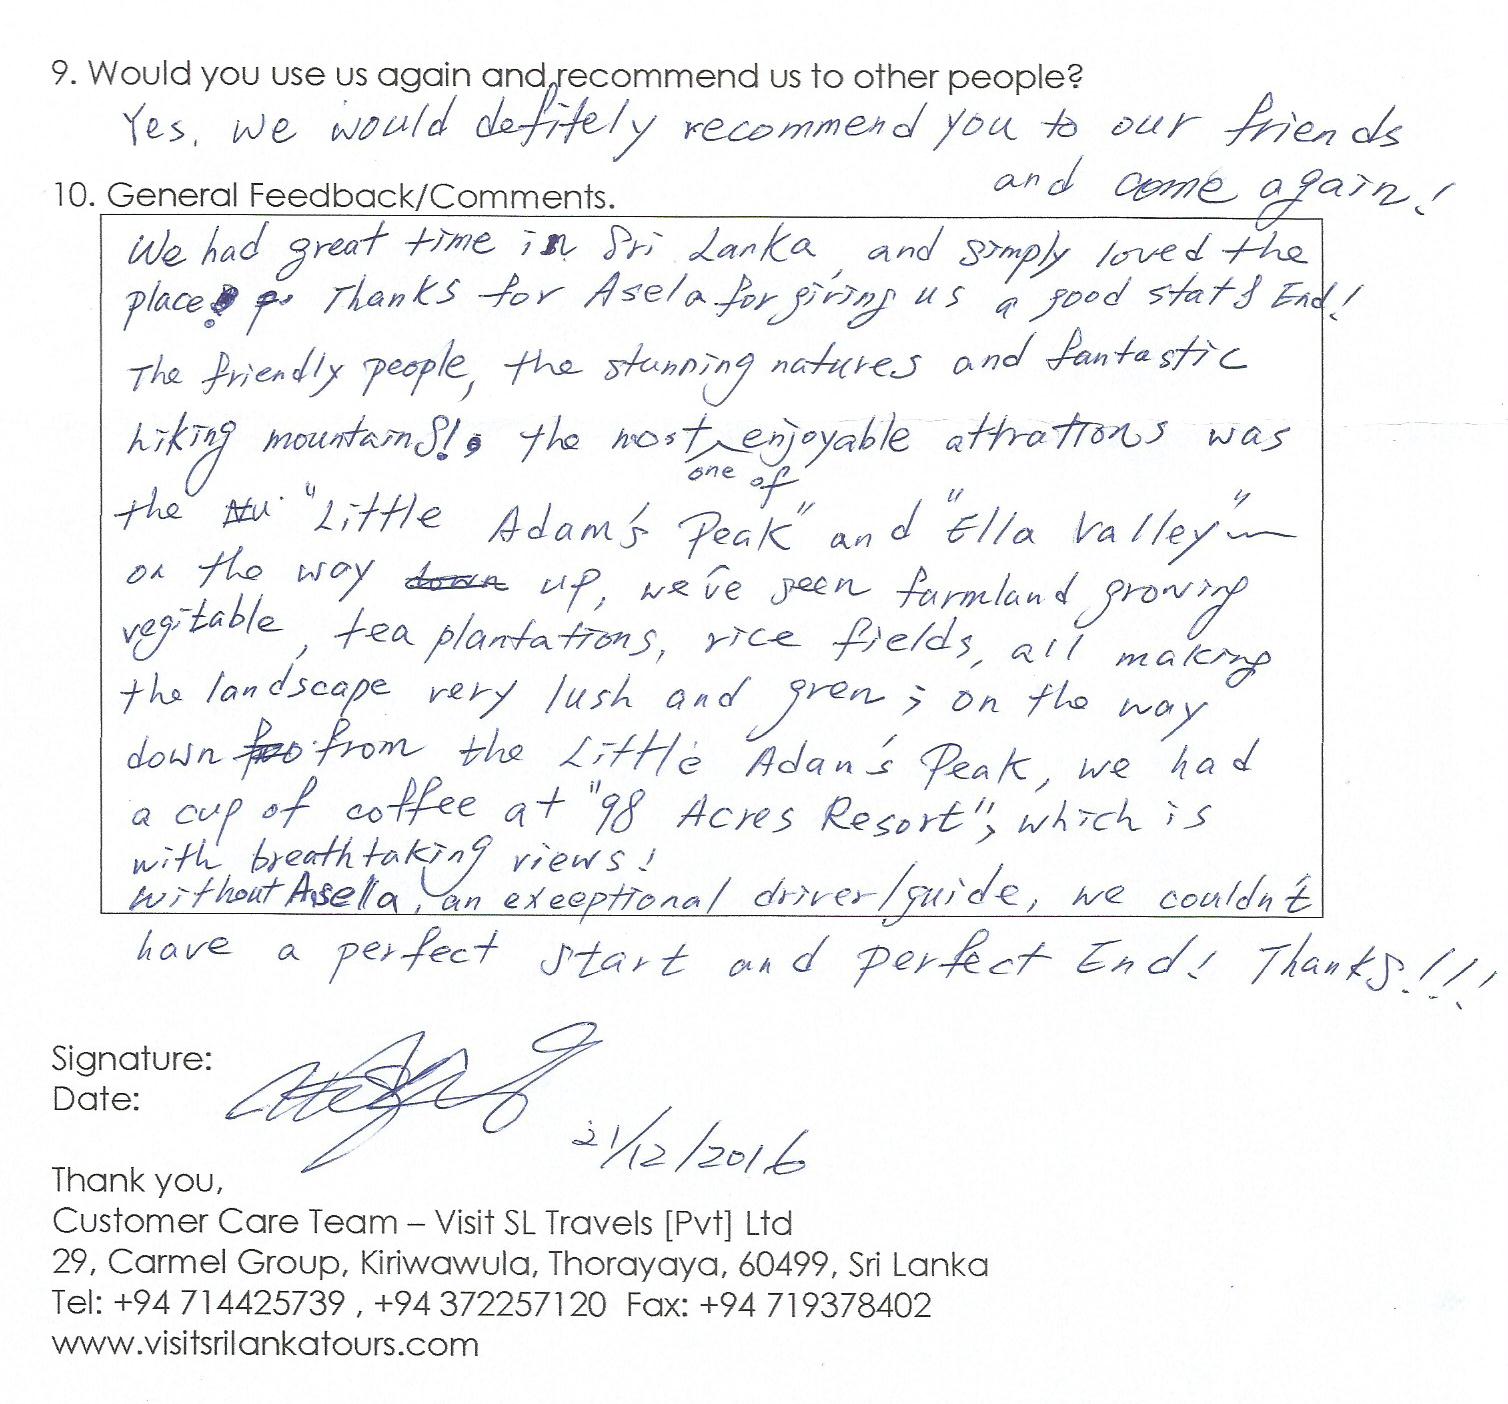 9. Would you use us again and recommend us to other people?
Yes, we would defitely recommend you to our friends
and come again!
10. General Feedback/Comments.
We had great time in Sri Lanka, and simply loved the
place! Thanks for Asela for giving us a good stat & End!
The friendly people, the stunning natures and fantastic
hiking mountains!, the most enjoyable attrations was
one of
the "Little Adam's Peak" and "Ella Valley"
on the way down up, we've seen farmland growing
vegitable, tea plantations, rice fields, all making
the landscape very lush and gren; on the way
down from the Little Adan's Peak, we had
a cup of coffee at "98 Acres Resort", which is
with breathtaking views!
without Asella, an exeeptional driver/guide, we couldn't
have a perfect start and perfect End! Thanks!!!
Signature:
Date:
21/12/2016
Thank you,
Customer Care Team – Visit SL Travels [Pvt] Ltd
29, Carmel Group, Kiriwawula, Thorayaya, 60499, Sri Lanka
Tel: +94 714425739 , +94 372257120 Fax: +94 719378402
www.visitsrilankatours.com